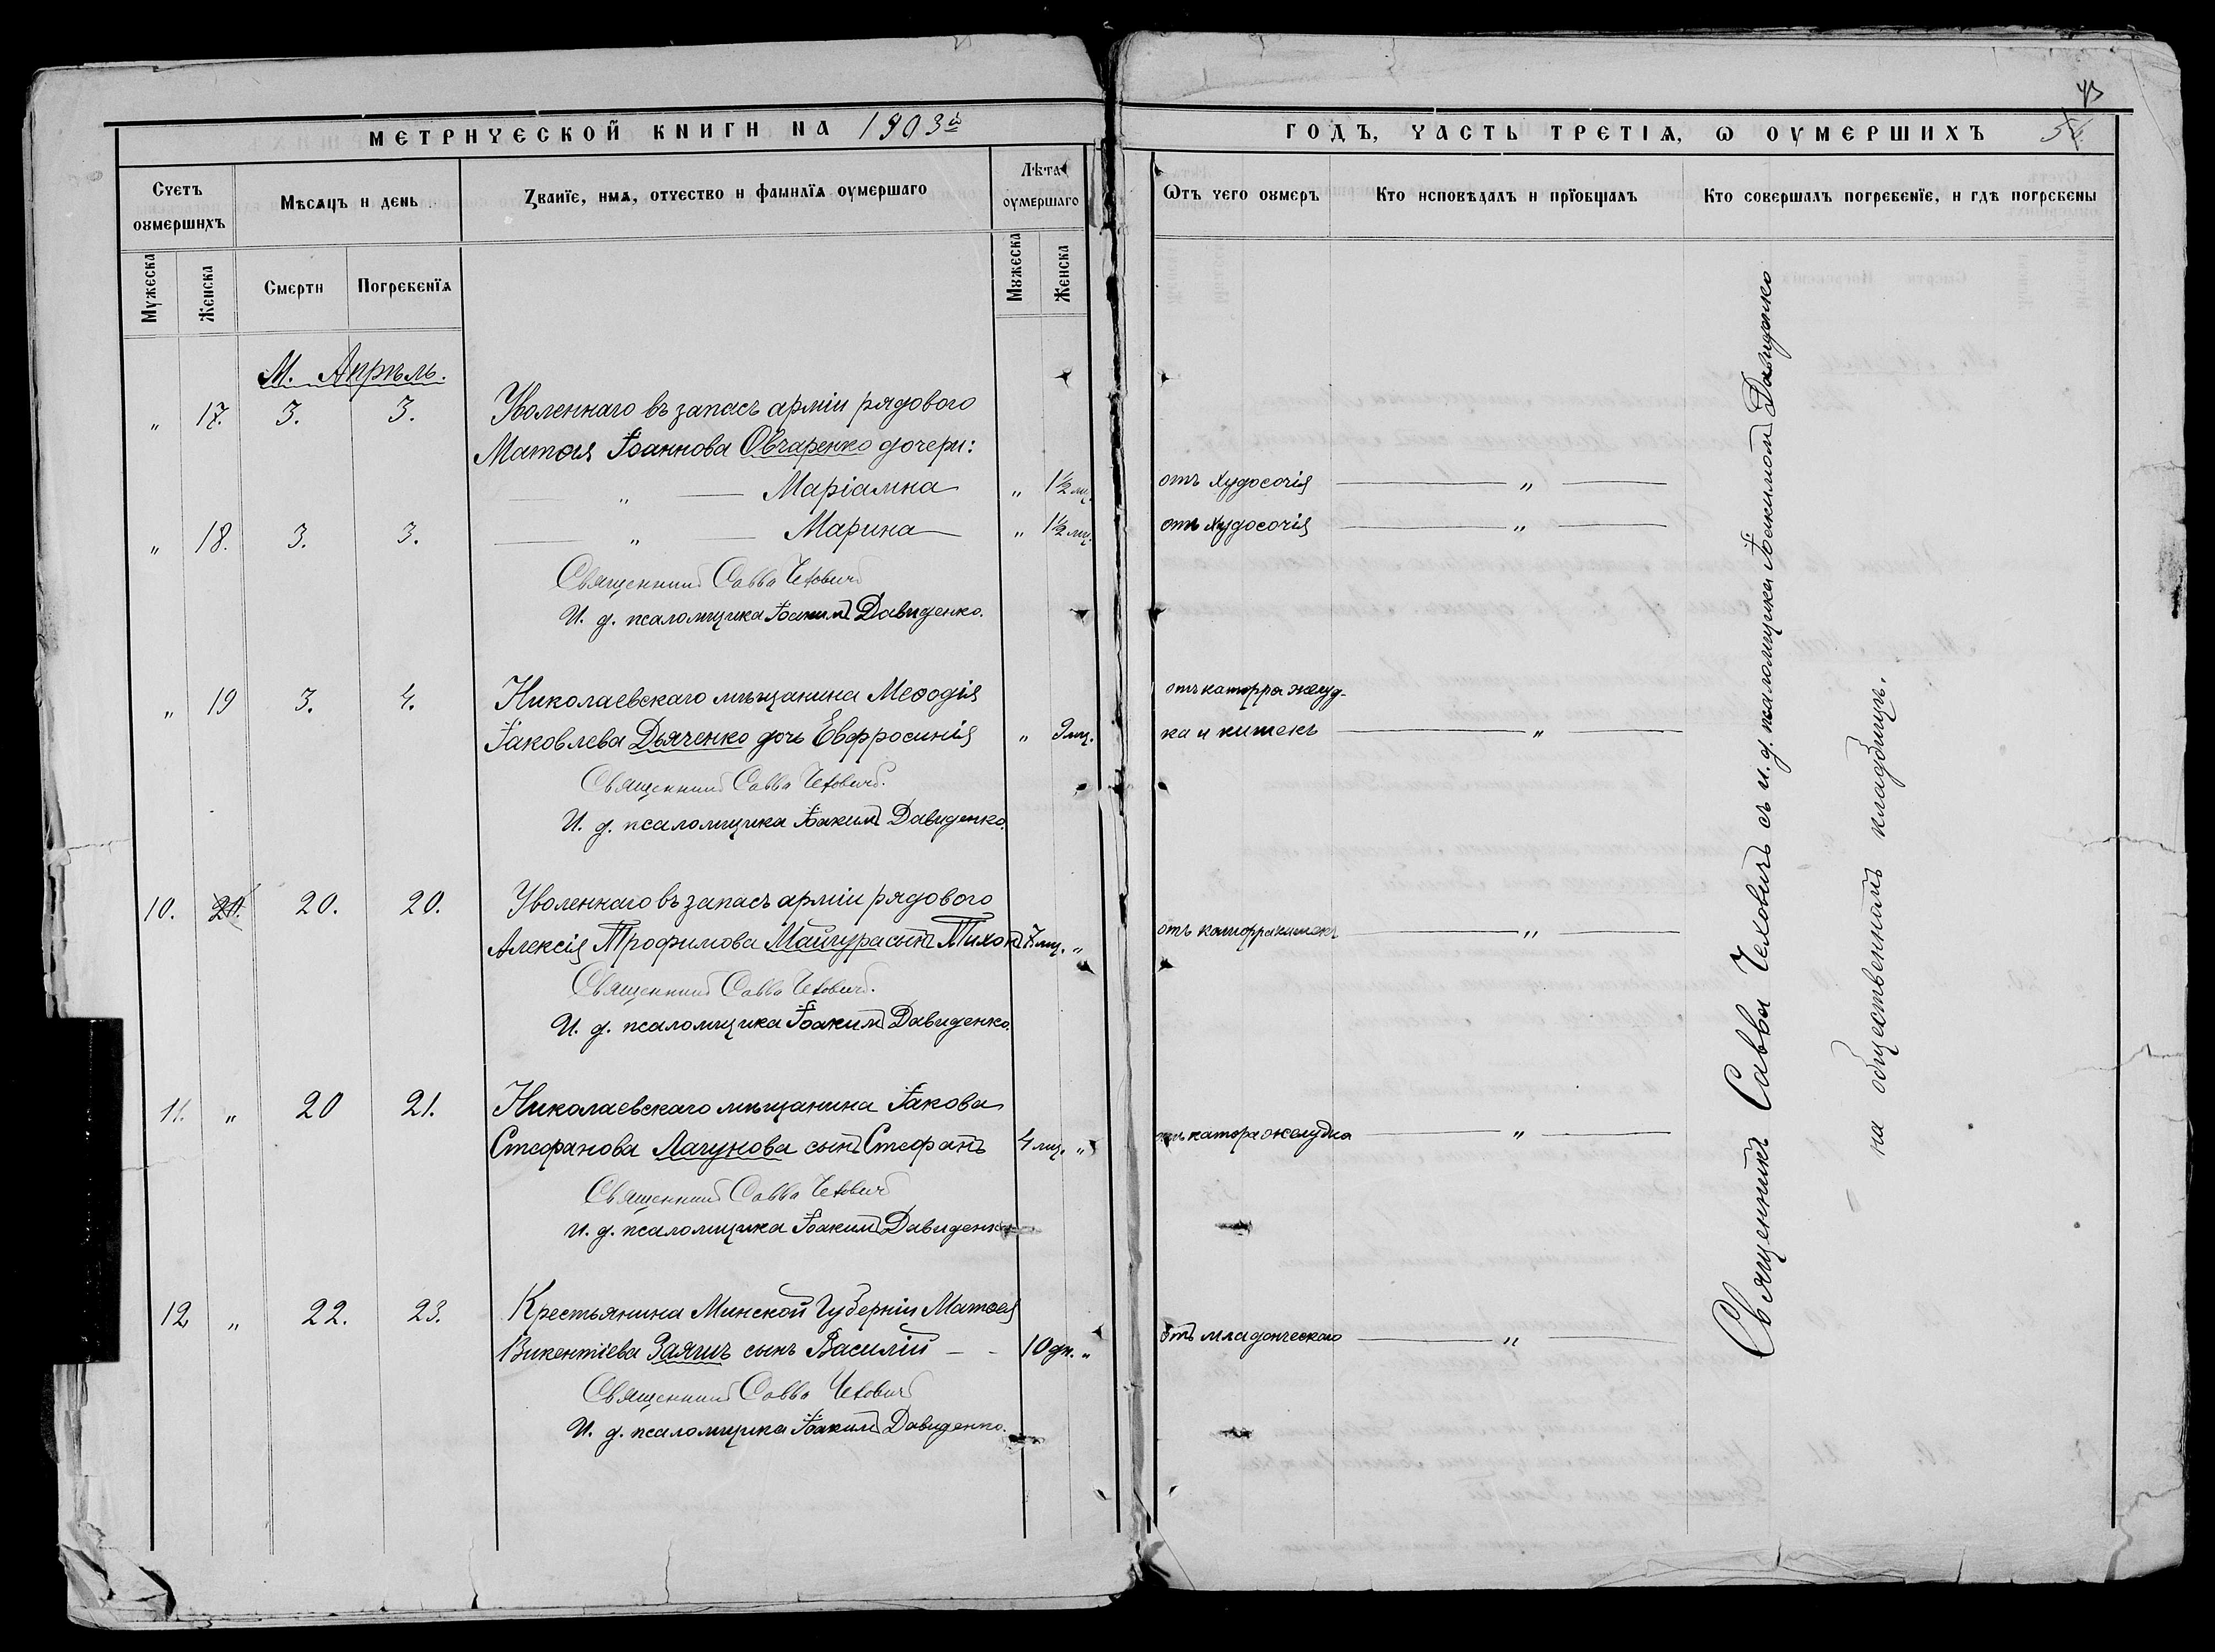 МЕТРИЧЕСКОЙ КНИГИ НА 1903й
ГОДЪ, ЧАСТЬ ТРЕТІЯ, Ѡ ОУМЕРШИХЪ
Счетъ оумершихъ
Мѣсяцъ и день
Званїе, имя, отчество и фамилїя оумершаго
Лѣта оумершаго
Ѿтъ чего оумеръ
Кто исповѣдалъ и прїобщалъ
Кто совершалъ погребенїе, и гдѣ погребены
Мужеска
Женска
Смерти
Погребенїя
Мужеска
Женска
М. Апрѣль.
" 17. 3. 3. Уволеннаго въ запасъ арміи рядового
Матѳея Іоаннова Овчаренко дочери:
" Маріамна " 1½ мц. отъ худосочія "
" 18. 3. 3. " Марина " 1½ мц. отъ худосочія "
Священникъ Савва Чеховичъ
И. д. псаломщика Іоакимъ Давиденко.
" 19 3. 4. Николаевскаго мѣщанина Меѳодія отъ катарра желуд-
Іаковлева Дьяченко дочь Евфросинія " 9 мц. ка и кишекъ "
Священникъ Савва Чеховичъ.
И. д. псаломщика Іоакимъ Давиденко.
10. 20. 20. 20. Уволеннаго въ запасъ арміи рядового
Алексія Трофимова Майгура сынъ Тихонъ 7 мц. " отъ катарра кишекъ "
Священникъ Савва Чеховичъ.
И. д. псаломщика Іоакимъ Давиденко.
11. " 20 21. Николаевскаго мѣщанина Іакова
Стефанова Лагунова сынъ Стефанъ 4 мц. " отъ катара желудка "
Священникъ Савва Чеховичъ
И. д. псаломщика Іоакимъ Давиденко
12 " 22. 23. Крестьянина Минской Губерніи Матѳея
Викентіева Заяцъ сынъ Василій 10 дн. " отъ младенческаго "
Священникъ Савва Чеховичъ
И. д. псаломщика Іоакимъ Давиденко.
Священникъ Савва Чеховичъ съ и. д. псаломщика Іоакимомъ Давиденко
на общественномъ кладбищѣ.